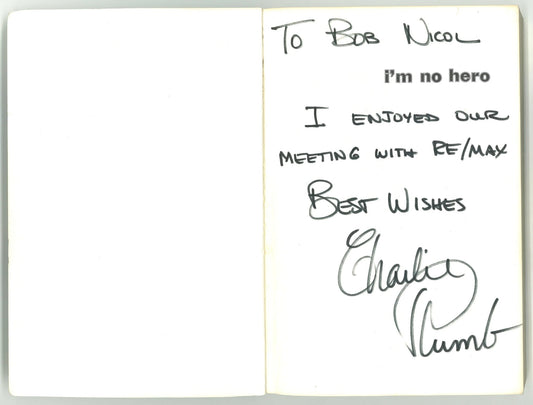 To Bob Nicol
i'm no hero
I ENJOYED OUR
MEETING WITH RE/MAX
BEST WISHES
Charlie
Plumb